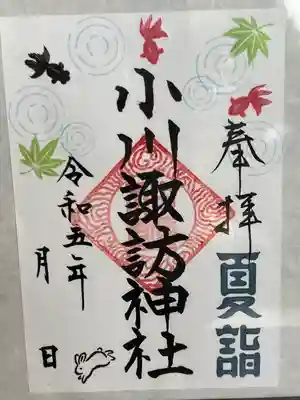 奉拝
夏詣
小川諏訪神社
令和五年
月 日